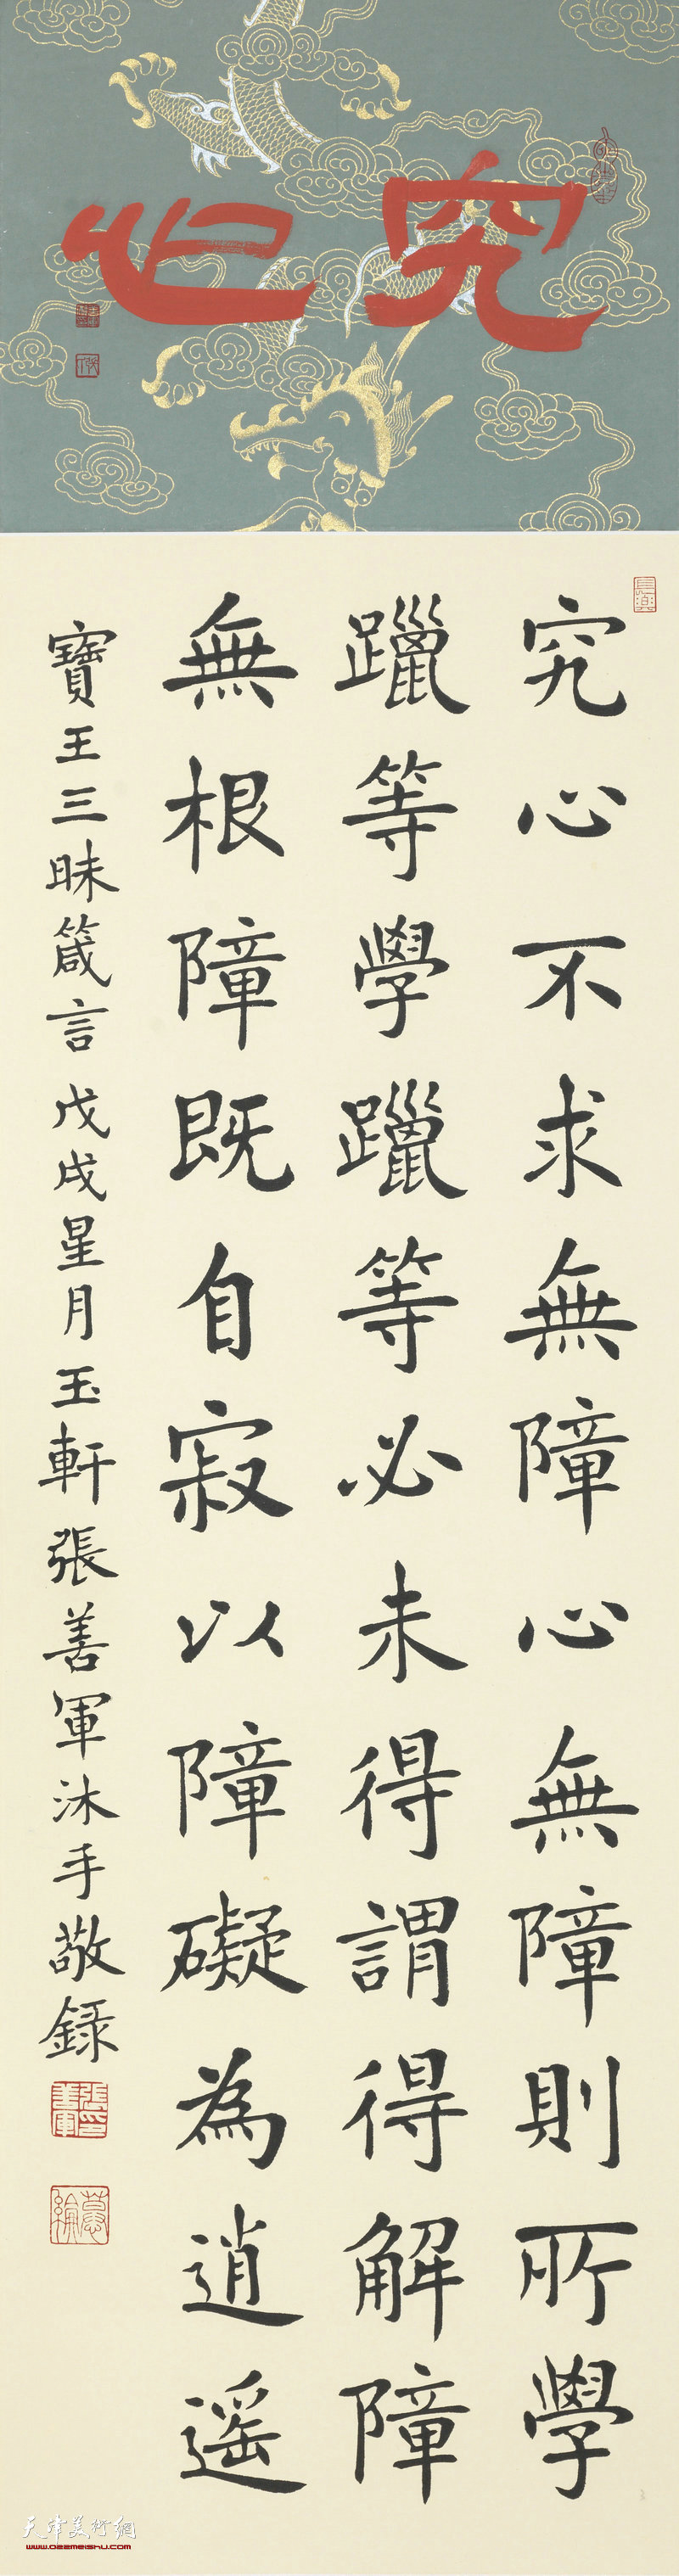 究心
究心不求無障心無障則所學
躐等學躐等必未得謂得解障
無根障既自寂以障礙為逍遥
寶王三昧箴言戊戌星月玉軒張善軍沐手敬録
張善軍印
天津美術網
www.022meishu.com